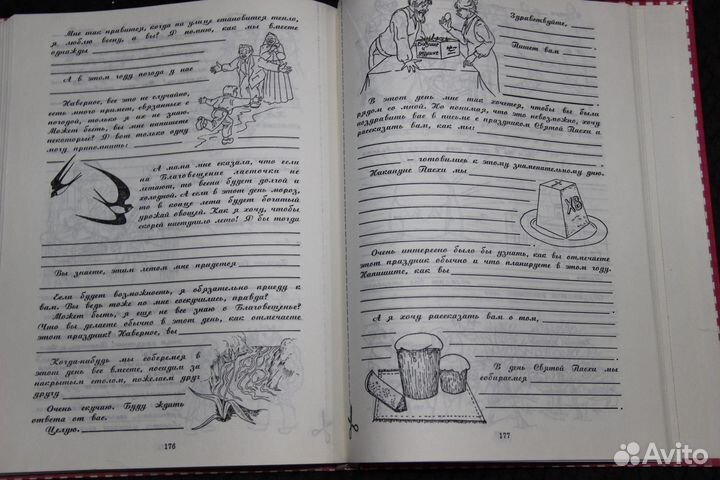 Мне так нравится, когда на улице становится тепло,
я люблю весну, а вы? Я помню, как мы вместе
однажды
А в этом году погода у нас
Наверное, все это не случайно,
есть много примет, связанных с
погодой, только я их не знаю.
Может быть, вы мне напишете
некоторые? Я вот только одну
могу припомнить:
А мама мне сказала, что если
на Благовещение ласточки не
летают, то весна будет долгой и
холодной. А если в этот день мороз,
то в конце лета будет богатый
урожай овощей. Как я хочу, чтобы
скорей наступило лето! Я бы тогда
Вы знаете, этим летом мне придется
Если будет возможность, я обязательно приеду к
вам. Вы ведь тоже по мне соскучились, правда?
Может быть, я еще не все знаю о Благовещенье?
Что вы делаете обычно в этот день, как отмечаете
этот праздник? Наверное, вы
Когда-нибудь мы соберемся в
этот день все вместе, посидим за
накрытым столом, пожелаем друг
другу
Очень скучаю. Буду ждать
ответа от вас.
Целую.
176
Здравствуйте,
Пишет вам
В этот день мне так хочется, чтобы вы были
рядом со мной. Но понимая, что это невозможно, хочу
поздравить вас в письме с праздником Святой Пасхи и
рассказать вам, как мы:
— готовились к этому знаменательному дню.
Накануне Пасхи мы
ХВ
Очень интересно было бы узнать, как вы отмечаете
этот праздник обычно и что планируете в этом году.
Напишите, как вы
А я хочу рассказать вам о том,
В день Святой Пасхи мы
собираемся
177
Avito